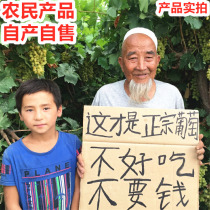 农民产品
自产自售
产品实拍
这才是正宗葡萄
不好吃
不要钱